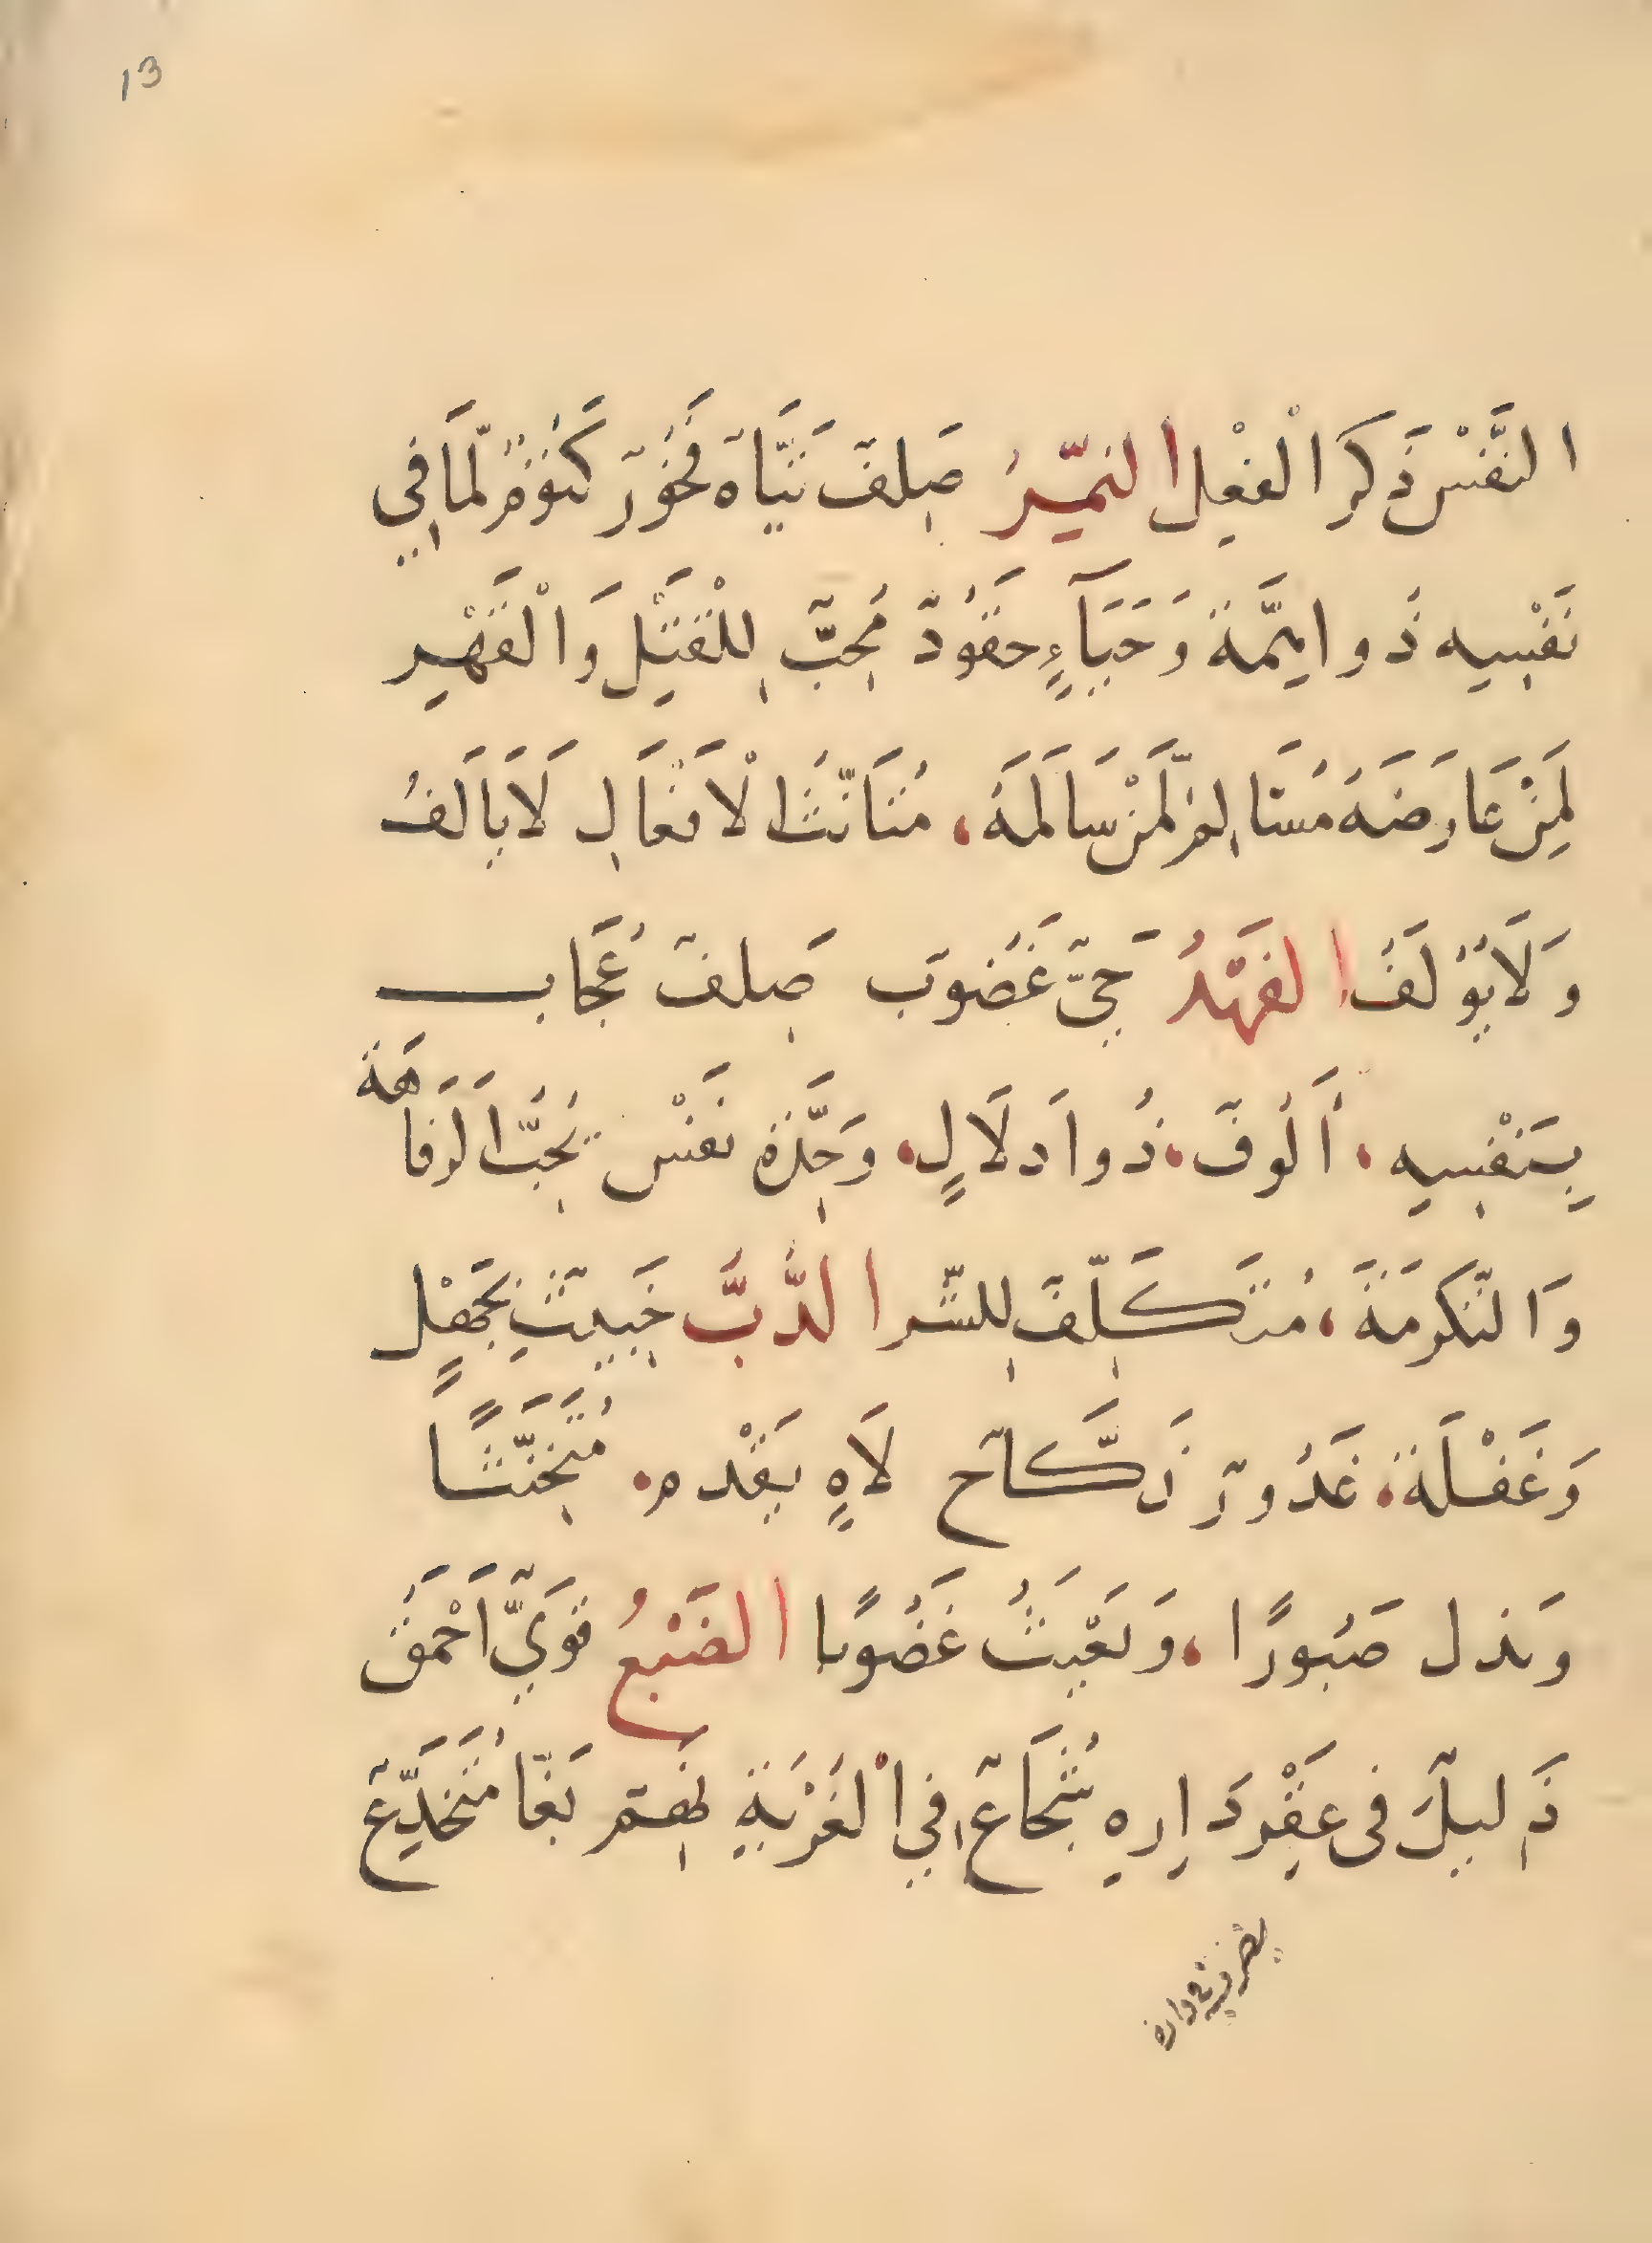 13
النَّفْس ذَكَرَ الْفعْلِ النمّيرُ صَلِفٌ تَيَّاهٌ فَخُورٌ كَتُومٌ لِّمَا فِي
نَفْسِهِ ذُو ايمَّة وَحَيَآءٍ حقُودٌ مُحِبٌّ لِلْقَتْلِ وَالْقَهْرِ
لِمَنْ عَارَضَهُ مُسَالِمٌ لِّمَنْ سَالَمَهُ، مُتَأَنّثُ الْأَفْعَالِ لَا يَالَفُ
وَلَا يُؤْلَفُ الفَهْدُ حَيِيٌّ غَضُوبٌ صَلِفٌ عُجَاب
بِنَفْسِهِ، أَلُوفٌ، ذُوا دلَالٍ، وَحِدَّةِ نَفْس يُحِبُّ الرَفَاهَة
وَالتَّكرمَةَ، مُتَكَلِّفٌ لِلشّر الدُّبُّ خَبِيثٌ بجَهْلٍ
وَغَفْلَةٍ، غَدُورٌ نَكَّاحٌ لَاهٍ يَقْدم، مُتَخَنِّثًا
وَيَذل صَبُورًا، وَيَعْيثُ غَضُوبًا الضَبْعُ قَوِيٌّ أَحْمَقُ
ذَلِيلٌ فى عقْرِ دَارِهِ شُجَاعٌ فِي الْغُرْبَةِ نَهِم بَغَّا مُتَخَدِّعٌ